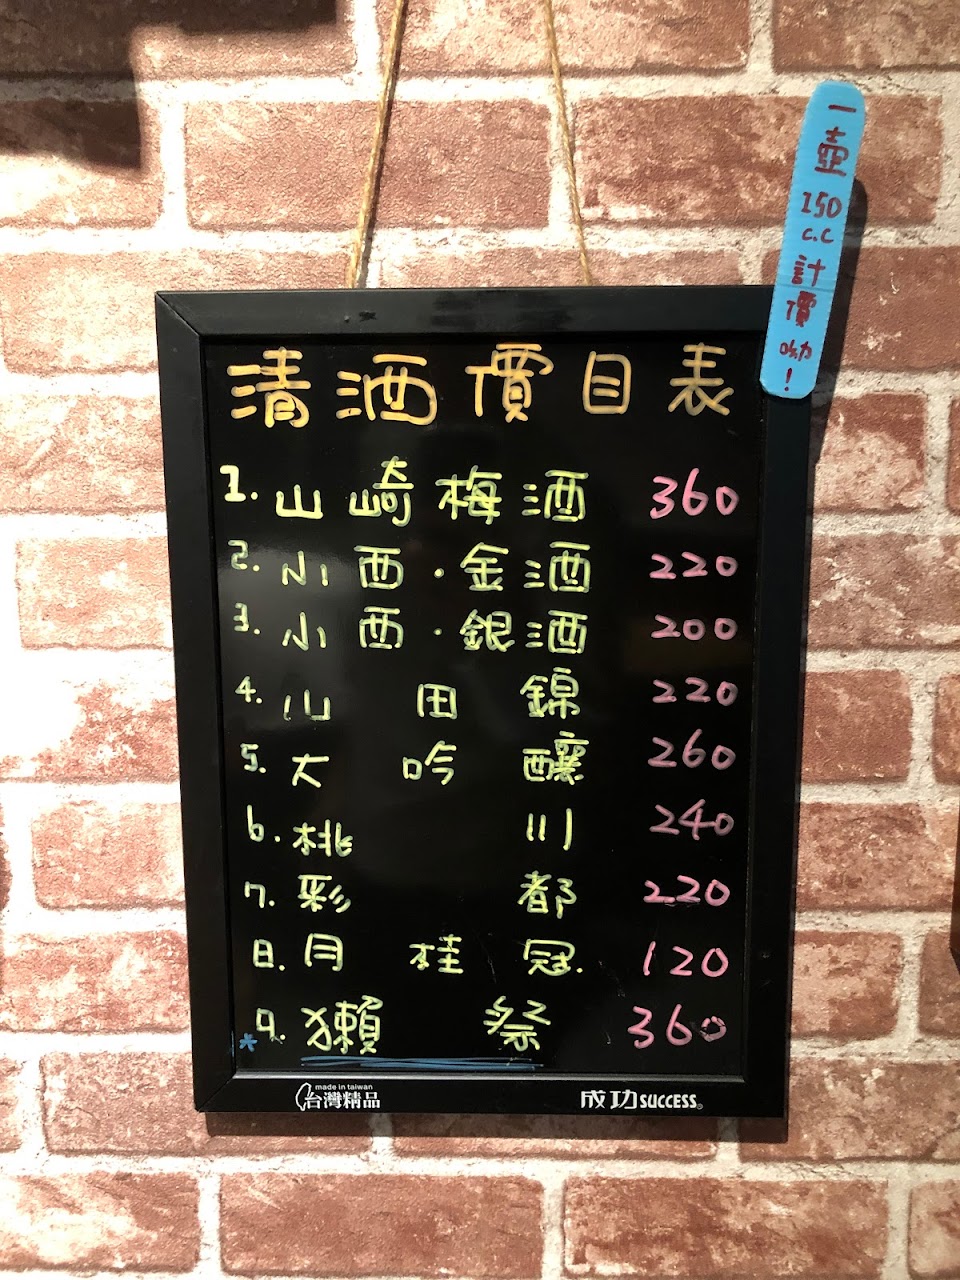 一壺150c.c計價呦!
清酒價目表
1. 山崎梅酒 360
2. 小西·金酒 220
3. 小西·銀酒 200
4. 山田錦 220
5. 大吟釀 260
6. 桃川 240
7. 彩都 220
8. 月桂冠. 120
*9. 獺祭 360
made in taiwan
台灣精品
成功SUCCESS